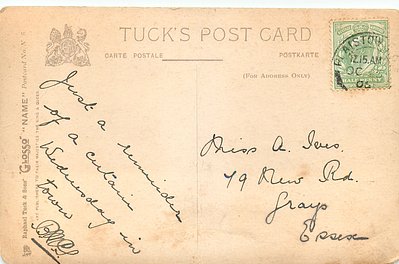 TUCK'S POST CARD
CARTE POSTALE
POSTKARTE
(FOR ADDRESS ONLY)
Raphael Tuck & Sons' "GLOSSO" "NAME" Postcard No. N. 5
Just a reminder
of a certain
Wednesday in
town
Miss A. Ives.
79 New Rd.
Grays
Essex
12.15 AM
OC
HALFPENNY